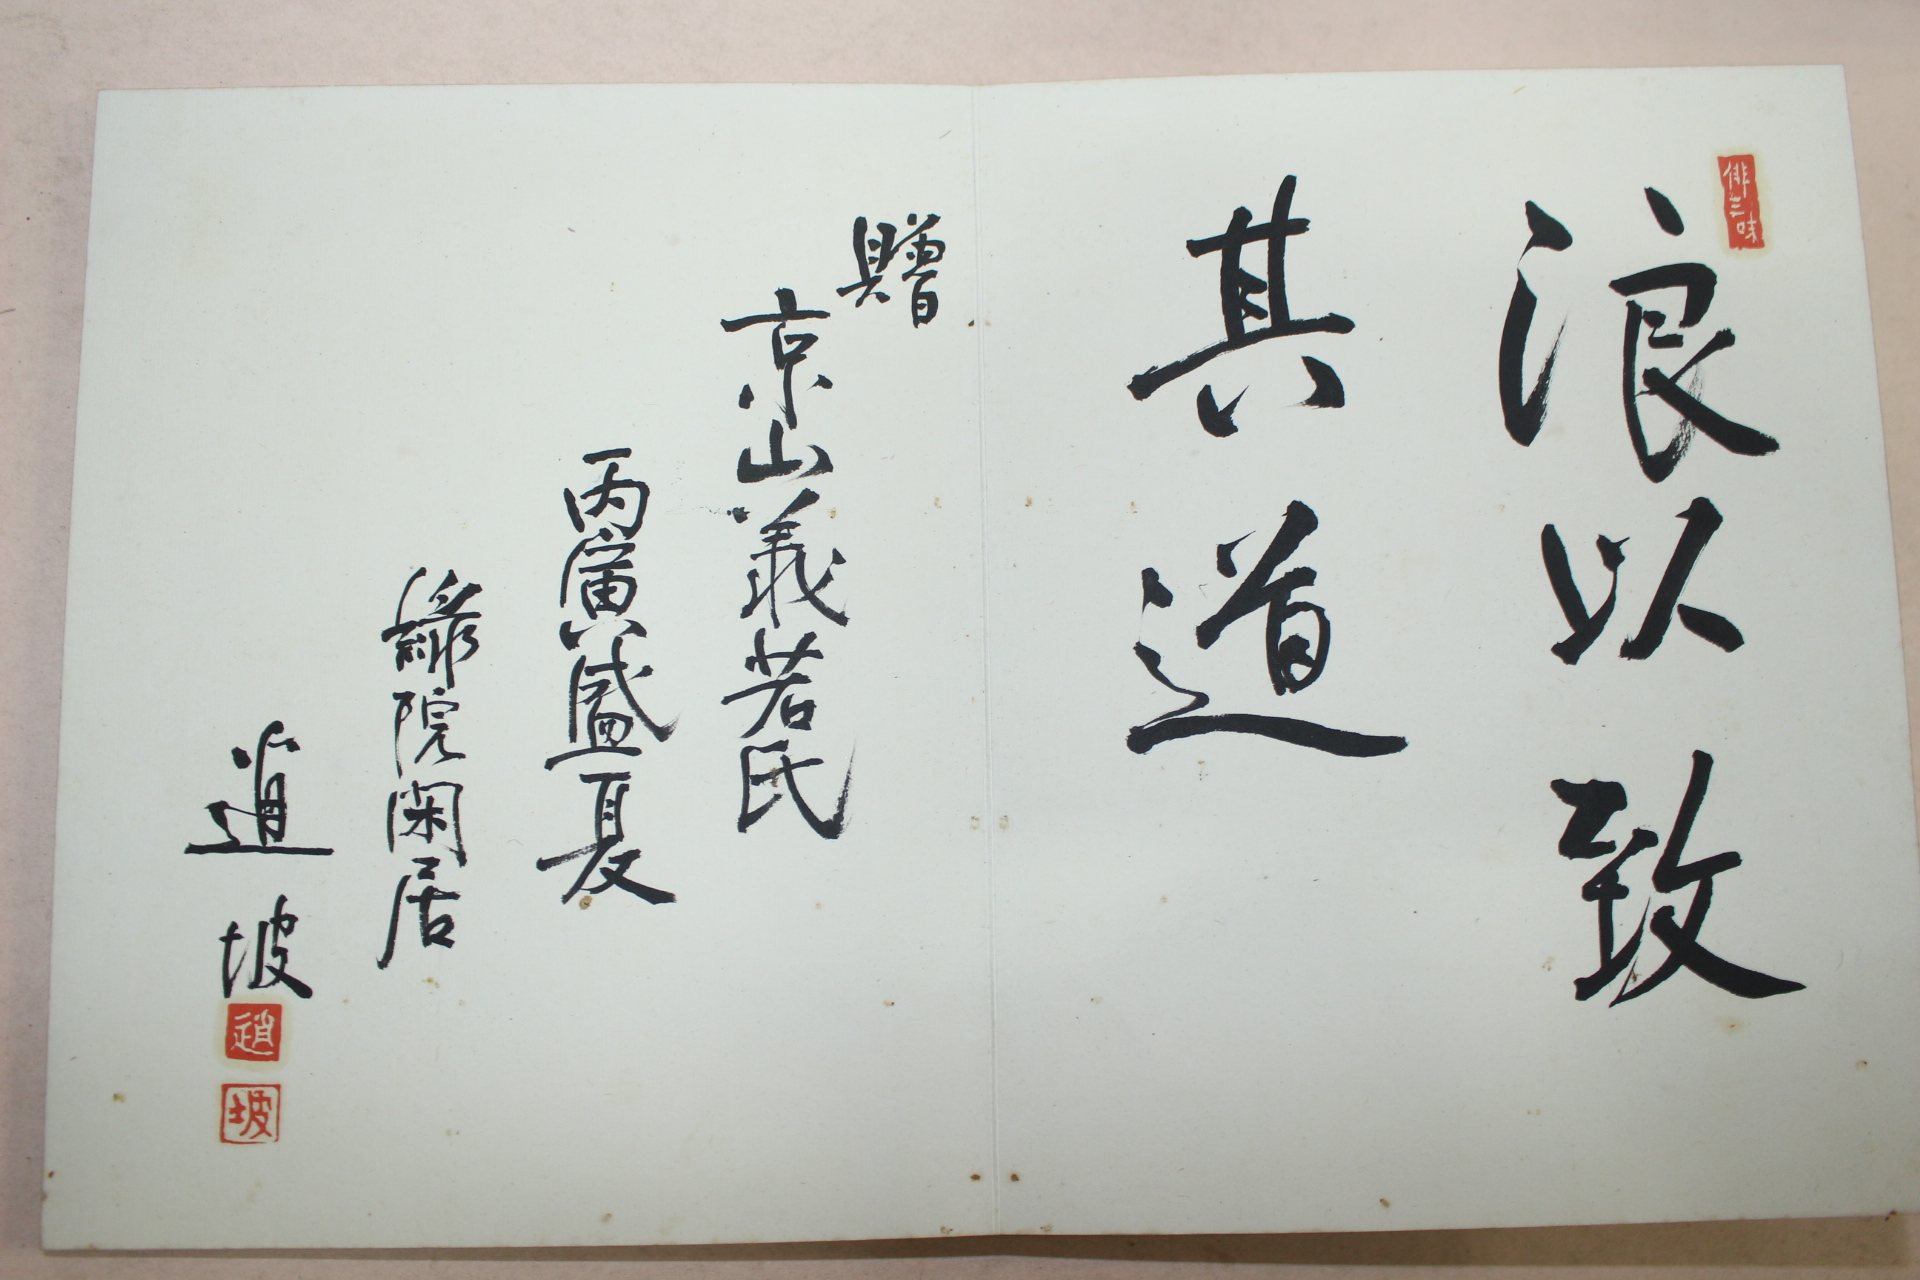 俳三味
浪以致
其道
贈
京山義若氏
丙寅盛夏
院閑居
逍坡
逍
坡